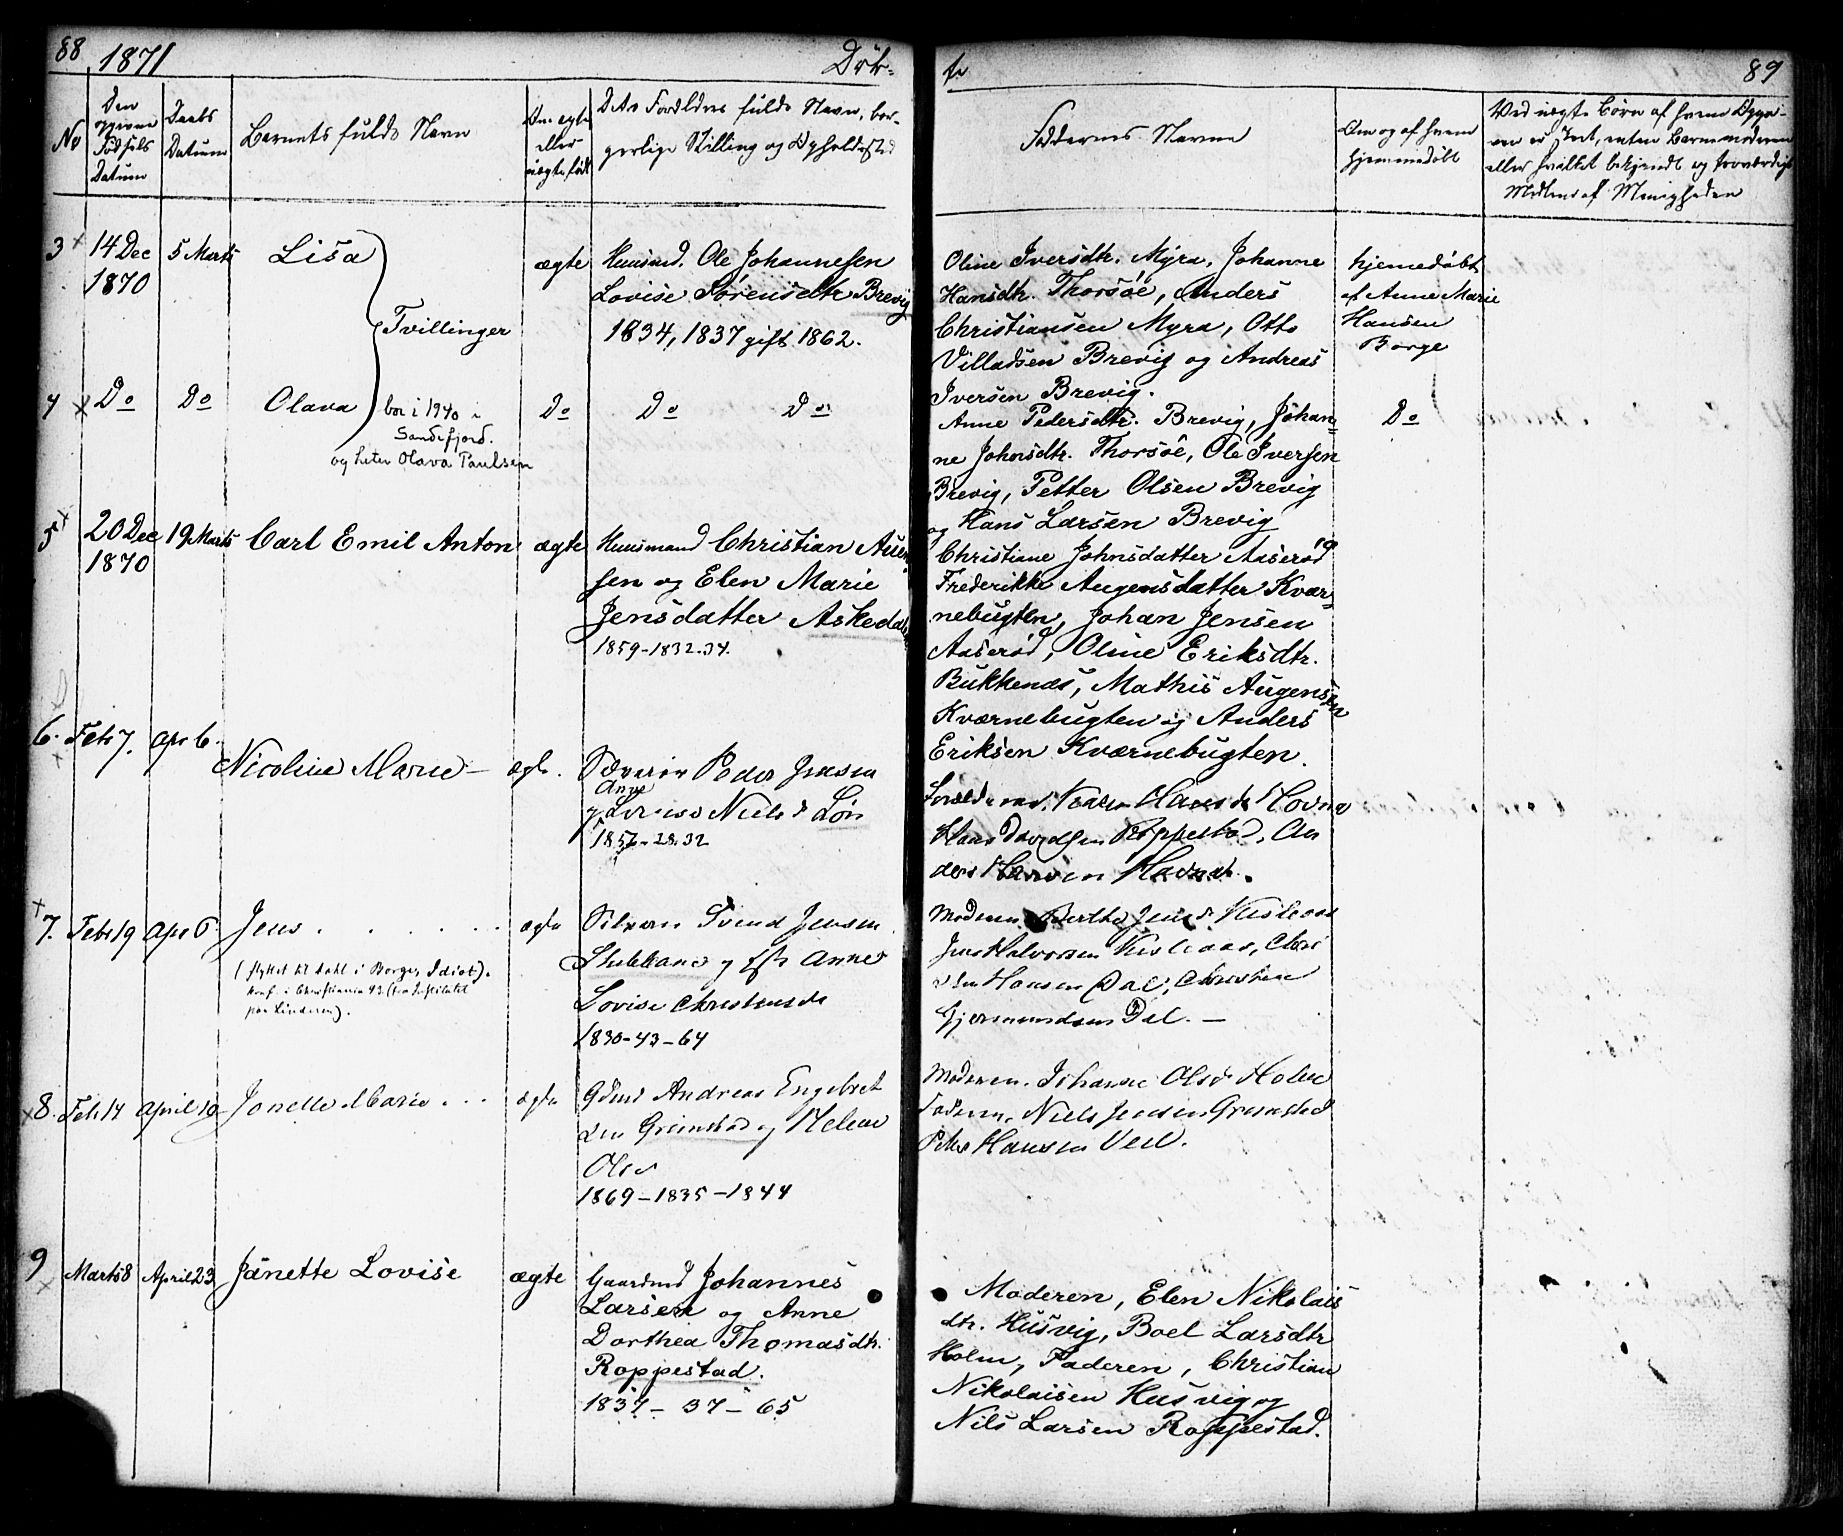 88 1871 Döb-
te 89
No
Den
Fødsels
Datum
Daabs
Datum
Barnets fulde Navn
Om ægte
eller
uægte født
Forældres fulde Navn, bor-
gerlige Stilling og Opholdssted
Faddernes Navne
Om og af hvem
hjemmedøbt
Ved uægte Børn af hvem Opga-
ven er skeet, enten Barnemoderen
eller hvilket bekjendt og troværdigt
Medlem af Menigheden
3 14 Dec 5 Marts Lisa ægte Huusmd. Ole Johannesen
1870 Lovise Sørensdtr Brevig
Tvillinger 1834, 1837 gift 1862.
Oline Iversdtr. Myra, Johanne
Hansdtr. Thorsöe, Anders
Christiansen Myra, Otto
Villadsen Brevig og Andreas
Iversen Brevig.
hjemedøbt
af Anne Marie
Hansen
Borge
4 Do Do Olava Do Do Do
bor i 1940 i
Sandefjord.
og heter Olava Paulsen
Anne Pedersdtr. Brevig, Johan-
ne Johnsdtr. Thorsöe, Ole Iversen
Brevig, Petter Olsen Brevig
og Hans Larsen Brevig
Do
5 20 Dec 19 Marts Carl Emil Anton ægte Huusmand Christian
1870 sen og Elen Marie
Jensdatter Askedal
1859-1832.34.
Christiane Johnsdatter Aaserød
Frederikke Augensdatter Kvær-
nebugten, Johan Jensen
Aaserød, Oline Eriksdtr.
Bukkenæs, Mathis Augensen
Kværnebugten og Anders
Eriksen Kværnebugten.
6. Feb 7. Apr 6. Nicoline Marie - ægte. Peder Jensen
Anne
Niels d
28.32
Hans d Hovna
Hans Roppestad, An
ders Hansen
7. Feb 19 Apr 6 Jens . . . . . ægte Svend Jensen
Anne
Lovise Christensd
1830-43-64
(flyttet til Dahl i Borge, Idiot).
Konf. i Christiania 93 (fra Institutet
paa Linderen).
Moderen Berthe Jens d
Jens Halvorsen
Hansen Dal, Christian
Gjermundsen Dal. -
8. Feb 14 April 10 Jonette Marie . . . ægte Gdmd Andreas Engebret
sen Grimstad og Helene
Olsd
1869-1835-1844
Moderen. Johanne Olsd Holm
Faderen, Niels Jensen Grimstad
Peter Hansen
9 Marts 8 April 23 Janette Lovise ægte Gaardmd Johannes
Larsen og Anne
Dorthea Thomasdtr.
Roppestad.
1837 - 37 - 65
Moderen, Elen Nikolais
dtr. Husvig, Boel Larsdtr
Holm, Faderen, Christian
Nikolaisen Husvig og
Nils Larsen Roppestad.